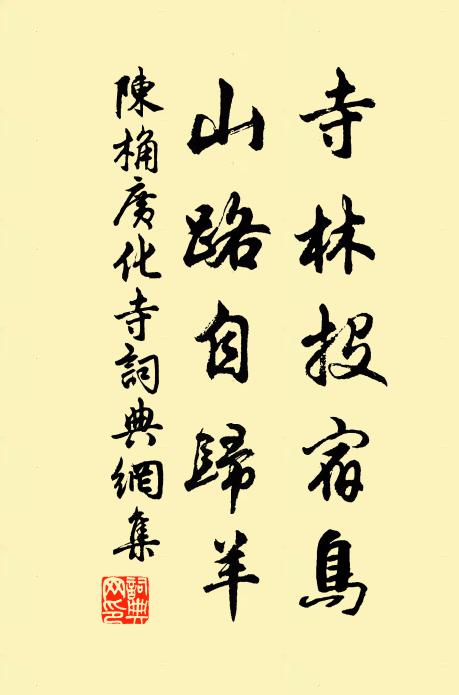 寺林投宿鳥
山路自歸羊
陳桷廣化寺詞典網集
詞典網印